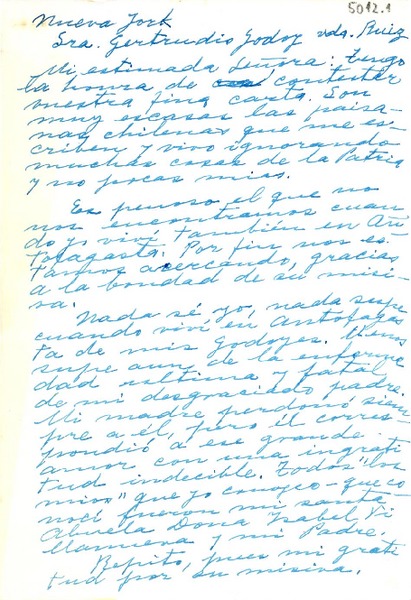 5012.1
Nueva York
Sra. Gertrudio Godoy vda. Ruiz
Mi estimada Señora: Tengo
la honra de contestar
vuestra fina carta. Son
muy escasas las paisa-
nas chilenas que me es-
criben y vivo ignorando
muchas cosas de la Patria
y no pocas mias.
Es penoso el que no
nos encontramos cuan-
do yo viví también en An-
tofagasta. Por fin nos es-
tamos acercando, gracias
a la bondad de su misi-
va.
Nada sé yo, nada supe
cuando viví en Antofagas-
ta de mis Godoyes. Menos
supe aun de la enferme-
dad ultima y fatal
de mi desgraciado padre.
Mi madre perdonó siem-
pre a él, pero él corres-
pondió a ese grande
amor con una ingrati
tud indecible. Todos "los
mios" que yo conozco - que co-
nocí fueron mi santa
Abuela Dona Isabel Vi
llanueva y mi Padre.
Repito, pues mi grati
tud por su misiva.